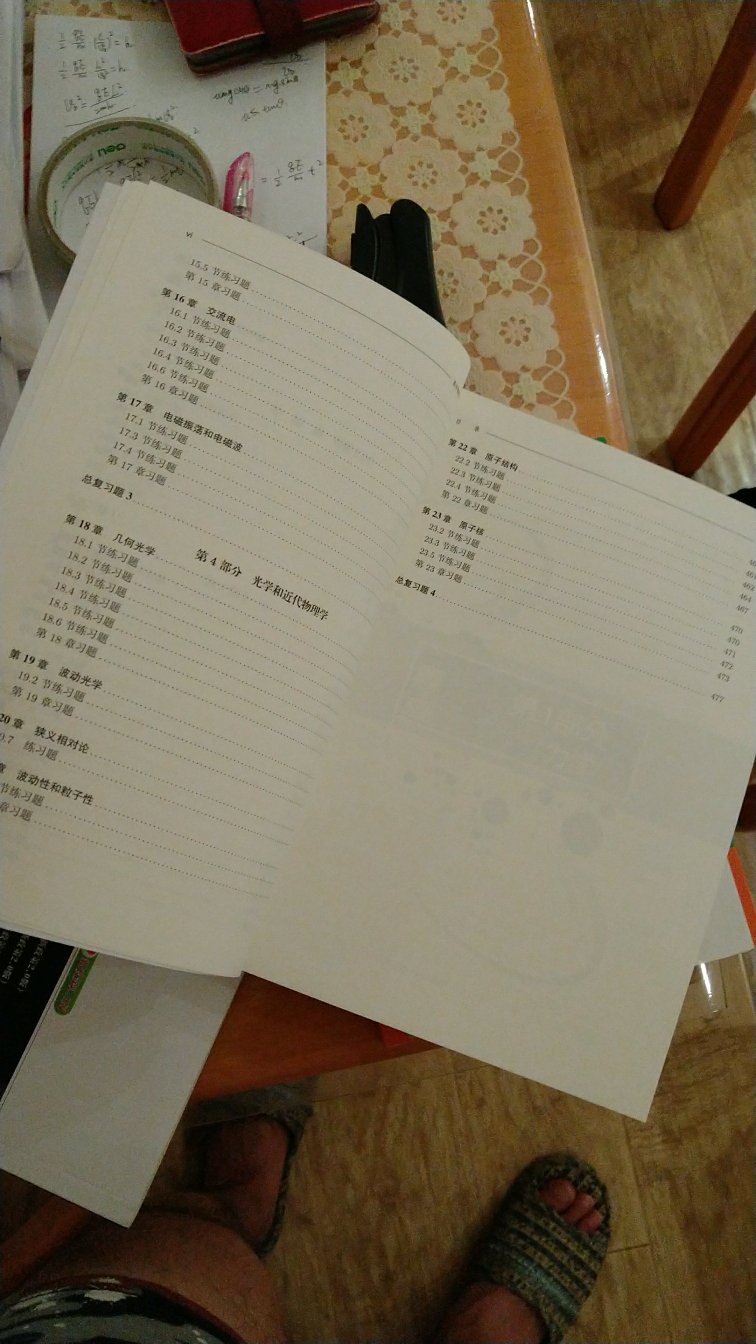 deli
vi
15.5 节练习题
第 15 章习题
第 16 章 交流电
16.1 节练习题
16.2 节练习题
16.3 节练习题
16.4 节练习题
16.6 节练习题
第 16 章习题
第 17 章 电磁振荡和电磁波
17.1 节练习题
17.3 节练习题
17.4 节练习题
第 17 章习题
总复习题 3
第 4 部分 光学和近代物理学
第 18 章 几何光学
18.1 节练习题
18.2 节练习题
18.3 节练习题
18.4 节练习题
18.5 节练习题
18.6 节练习题
第 18 章习题
第 19 章 波动光学
19.2 节练习题
第 19 章习题
20 章 狭义相对论
0.7 练习题
章 波动性和粒子性
节练习题
章习题
第 22 章 原子结构
22.2 节练习题
22.3 节练习题
22.4 节练习题
第 22 章习题
第 23 章 原子核
23.2 节练习题
23.3 节练习题
23.5 节练习题
第 23 章习题
总复习题 4
462
464
467
470
470
471
472
473
477